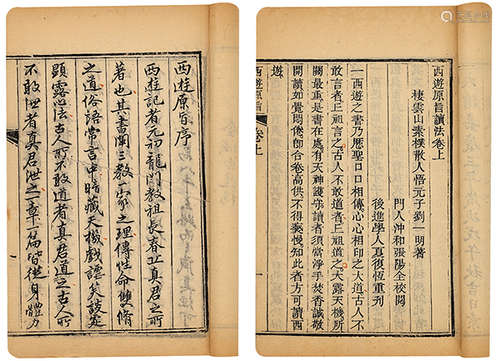 西遊原旨序
西遊記者元初龍門教祖長春丘真君之所
著也其書闡三教一家之理傳性命雙修
之道俗語常言中暗藏天機戲謔笑談處
顯露心法古人所不敢道者真君道之古人所
不敢泄者真君泄之一章一篇皆從身體力
西遊原旨讀法卷上
棲雲山素樸散人悟元子劉一明著
門人沖和張陽全校閱
後進學人夏復恆重刊
一西遊之書乃歷聖口口相傳心心相印之大道古人不
敢言者丘祖言之古人不敢道者丘祖道之大露天機所
關最重是書在處有天神護守讀者須當淨手焚香誠敬
開讀如覺悶倦即合卷高供不得褻慢知此者方可讀西
遊
西遊原旨 卷上